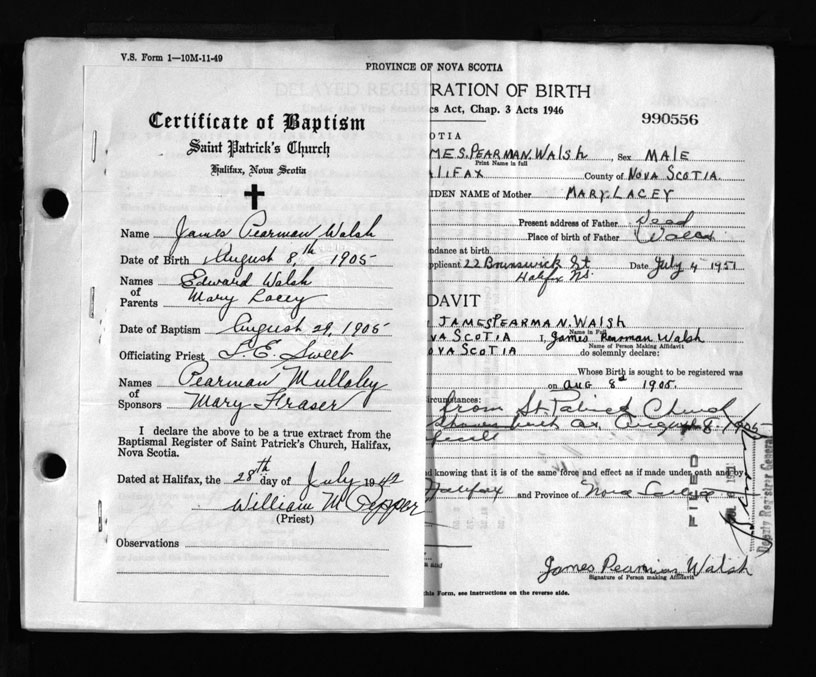 V.S. Form 1—10M-11-49
PROVINCE OF NOVA SCOTIA
Certificate of Baptism
Saint Patrick's Church
Halifax, Nova Scotia
Name James Pearman Walsh
Date of Birth August 8,th 1905
Names Edward Walsh
of
Parents Mary Lacey
Date of Baptism August 29, 1905
Officiating Priest L. E. Sweet
Names Pearman Mullaley
of
Sponsors Mary Fraser
I declare the above to be a true extract from the
Baptismal Register of Saint Patrick's Church, Halifax,
Nova Scotia.
Dated at Halifax, the 28th day of July 1942
William M. Pepper
(Priest)
Observations
RATION OF BIRTH
s Act, Chap. 3 Acts 1946
990556
OTIA
MES. PEARMAN. WALSH, Sex MALE
Print Name in full
ALIFAX County of NOVA SCOTIA.
IDEN NAME of Mother MARY. LACEY
Present address of Father Dead
Place of birth of Father
ndance at birth
pplicant 22 Brunswick St Date July 4 1951
Halifax NS.
DAVIT
JAMES PEARMAN. WALSH
Name in Full
VA SCOTIA I, James Pearman Walsh
Name of Person Making Affidavit
OVA SCOTIA do solemnly declare:
Whose Birth is sought to be registered was
on Aug 8th 1905.
ircumstances:
from St. Patrick Church
shows birth as August 8. 1905
nd knowing that it is of the same force and effect as if made under oath and by
Halifax and Province of Nova Scotia
FILED
Deputy Registrar General
James Pearman Walsh
Signature of Person making Affidavit
this Form, see Instructions on the reverse side.